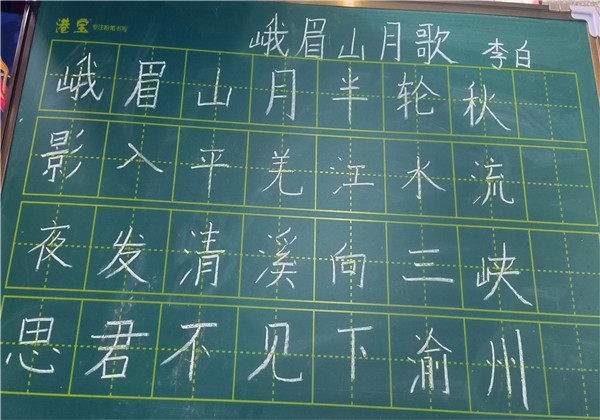 港宝 专注粉笔书写
峨眉山月歌 李白
峨眉山月半轮秋
影入平羌江水流
夜发清溪向三峡
思君不见下渝州